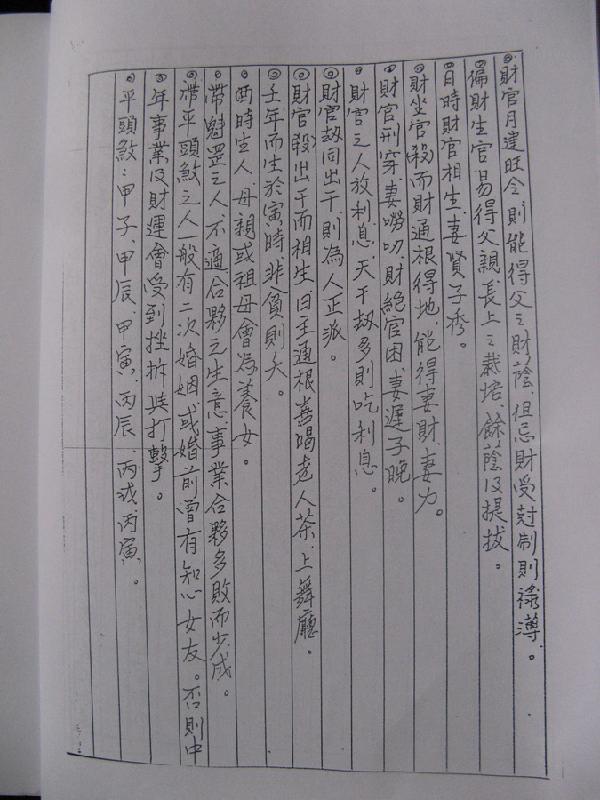 ◎財官月建旺令，則能得父之財蔭，但忌財受尅制則祿薄。
◎偏財生官易得父親、長上之栽培、餘蔭及提拔。
◎日時財官相生妻賢子秀。
◎財坐官(殺)而財通根得地，能得妻財、妻力。
◎財官刑穿妻嘮叨，財絕官困，妻遲子晚。
◎財官之人放利息，天干劫多則吃利息。
◎財官劫同出干，則為人正派。
◎財官(殺)出干而相生，日主通根喜喝老人茶、上舞廳。
◎壬年而生於寅時，非貧則夭。
◎酉時之人，母親或祖母會為養女。
◎帶魁罡之人，不適合夥之生意，事業合夥多敗而少成。
◎帶平頭煞之人一般有二次婚姻，或婚前曾有知心女友。否則中
年事業及財運會受到挫折與打擊。
◎平頭煞：甲子、甲辰、甲寅、丙辰、丙戌、丙寅。